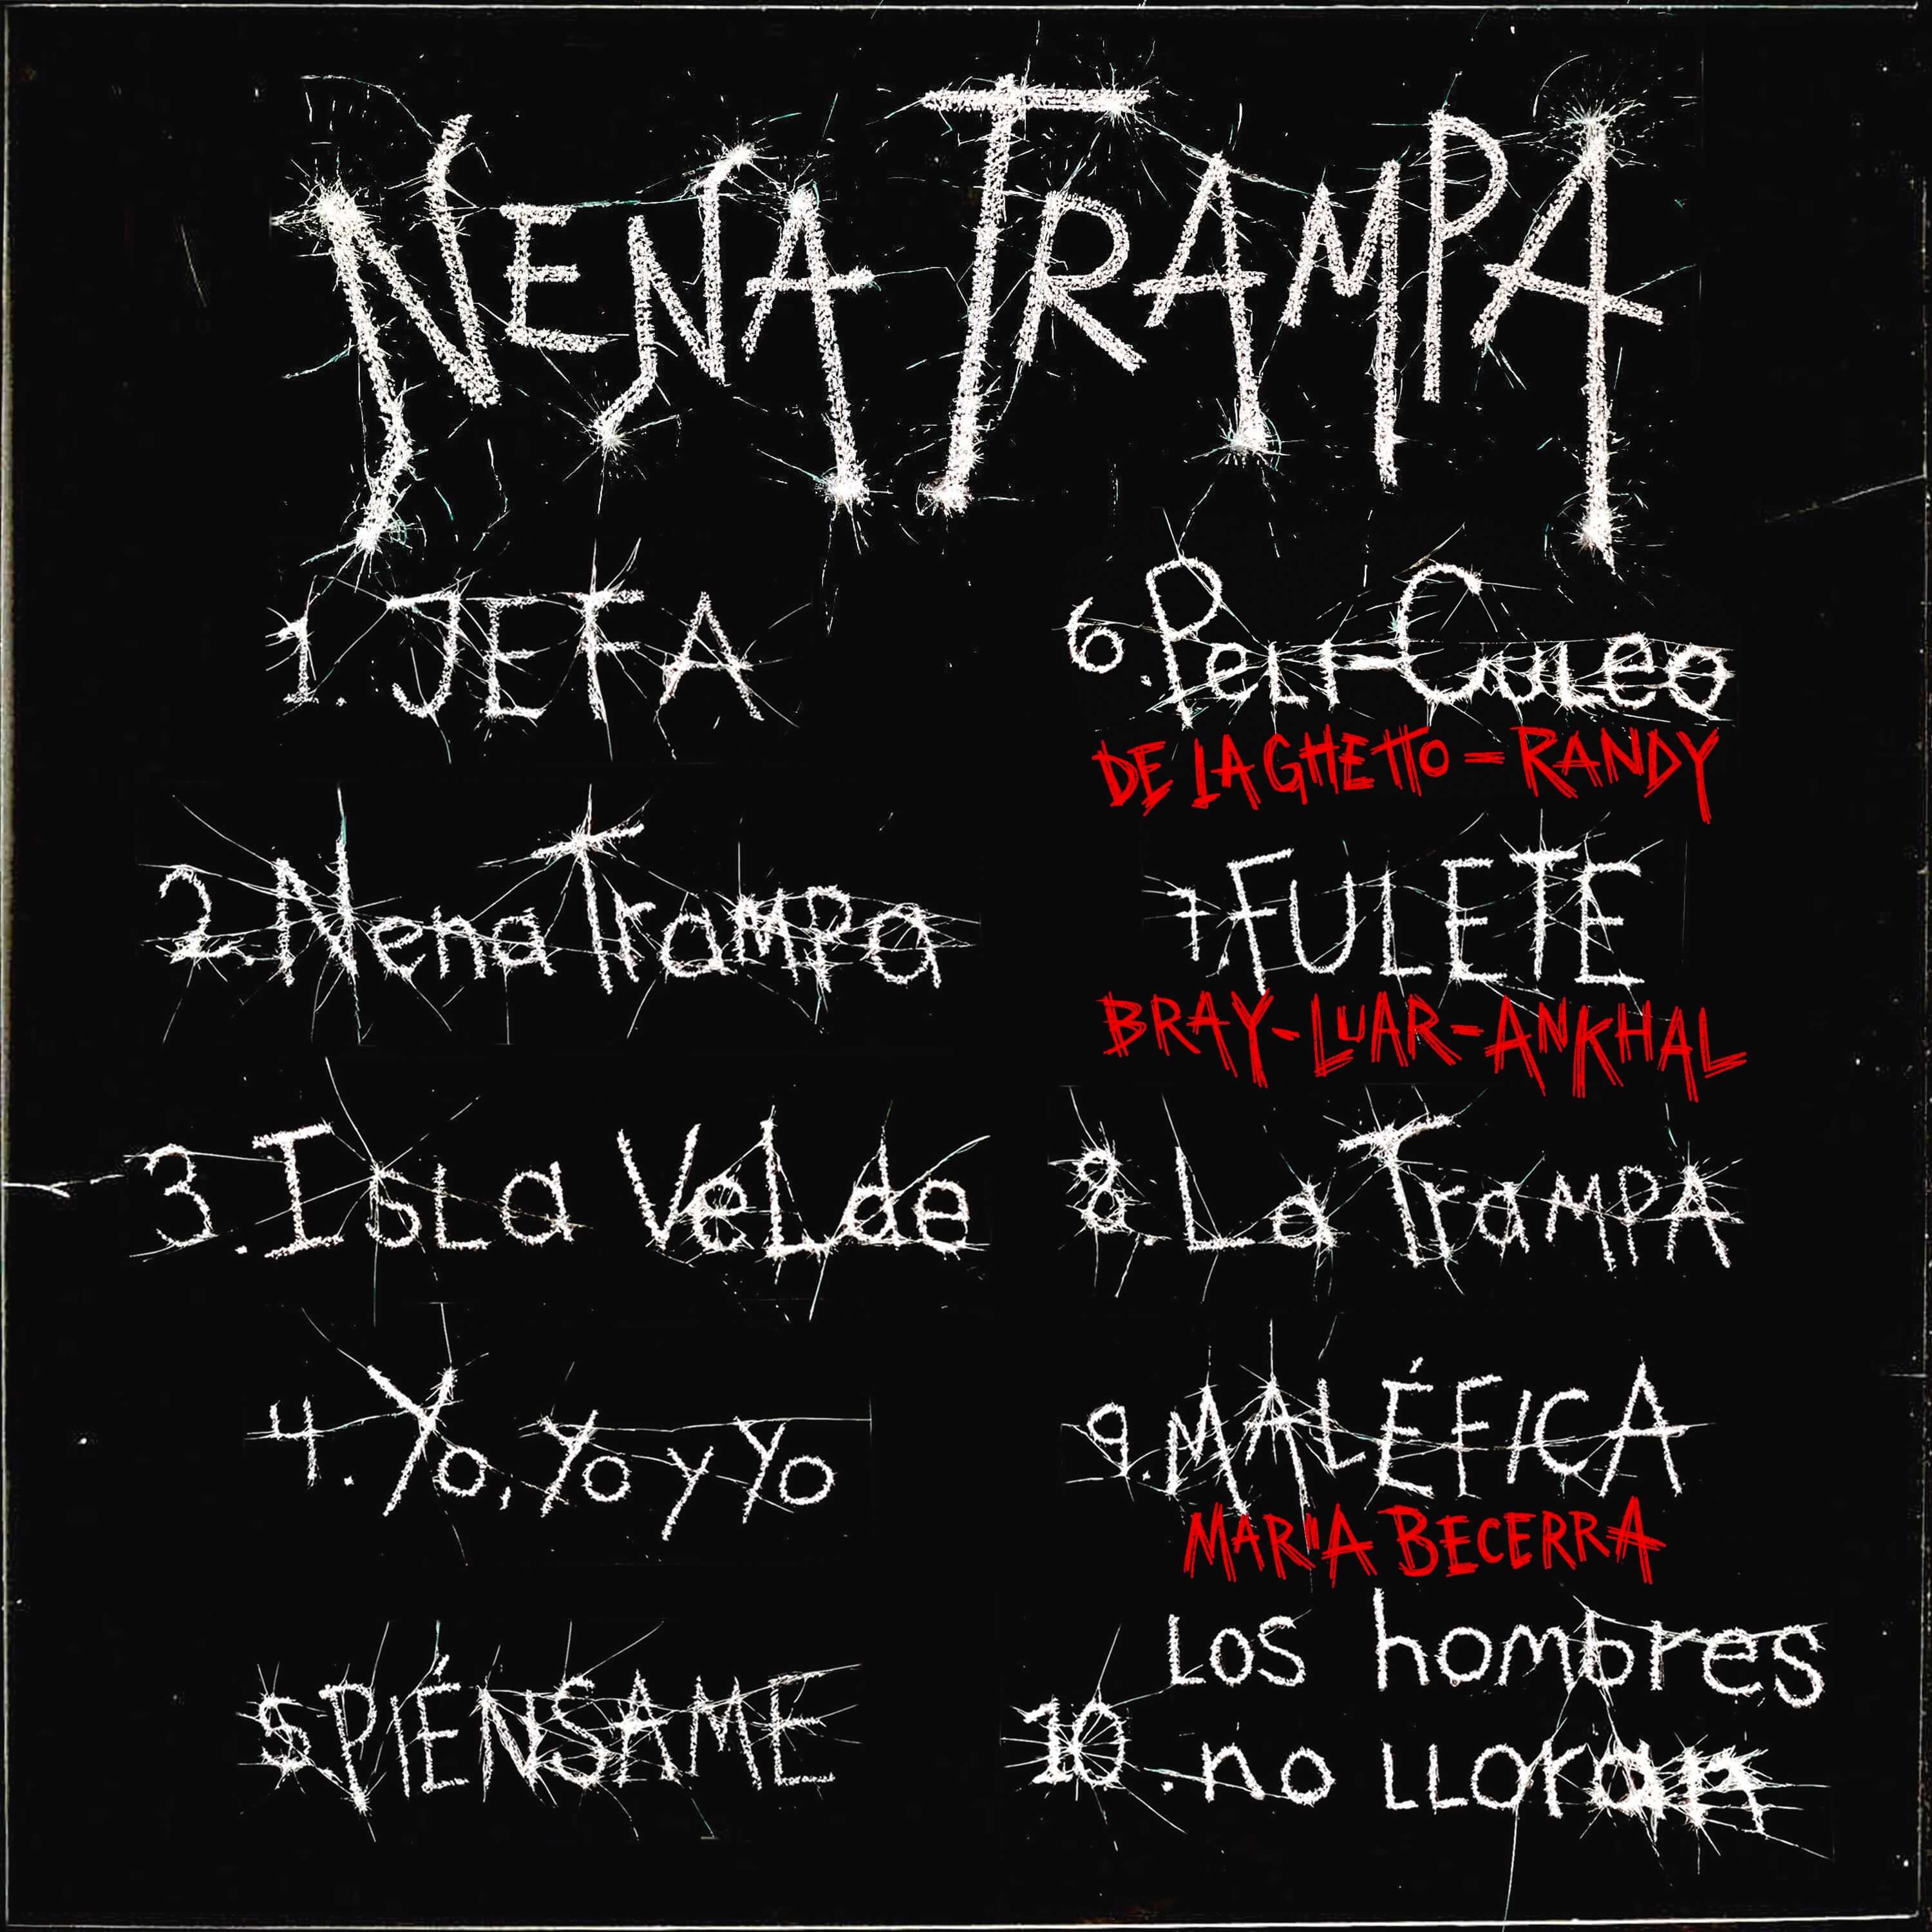 NENA TRAMPA
1. JEFA
2. Nena Trampa
3. Isla Velde
4. Yo, Yo y Yo
5 PIÉNSAME
6. Peli-Culeo
DE LA GHETTO = RANDY
7. FULETE
BRAY-LUAR-ANKHAL
8. La TrampA
9. MALÉFICA
MARIA BECERRA
Los hombres
10. no LLoran